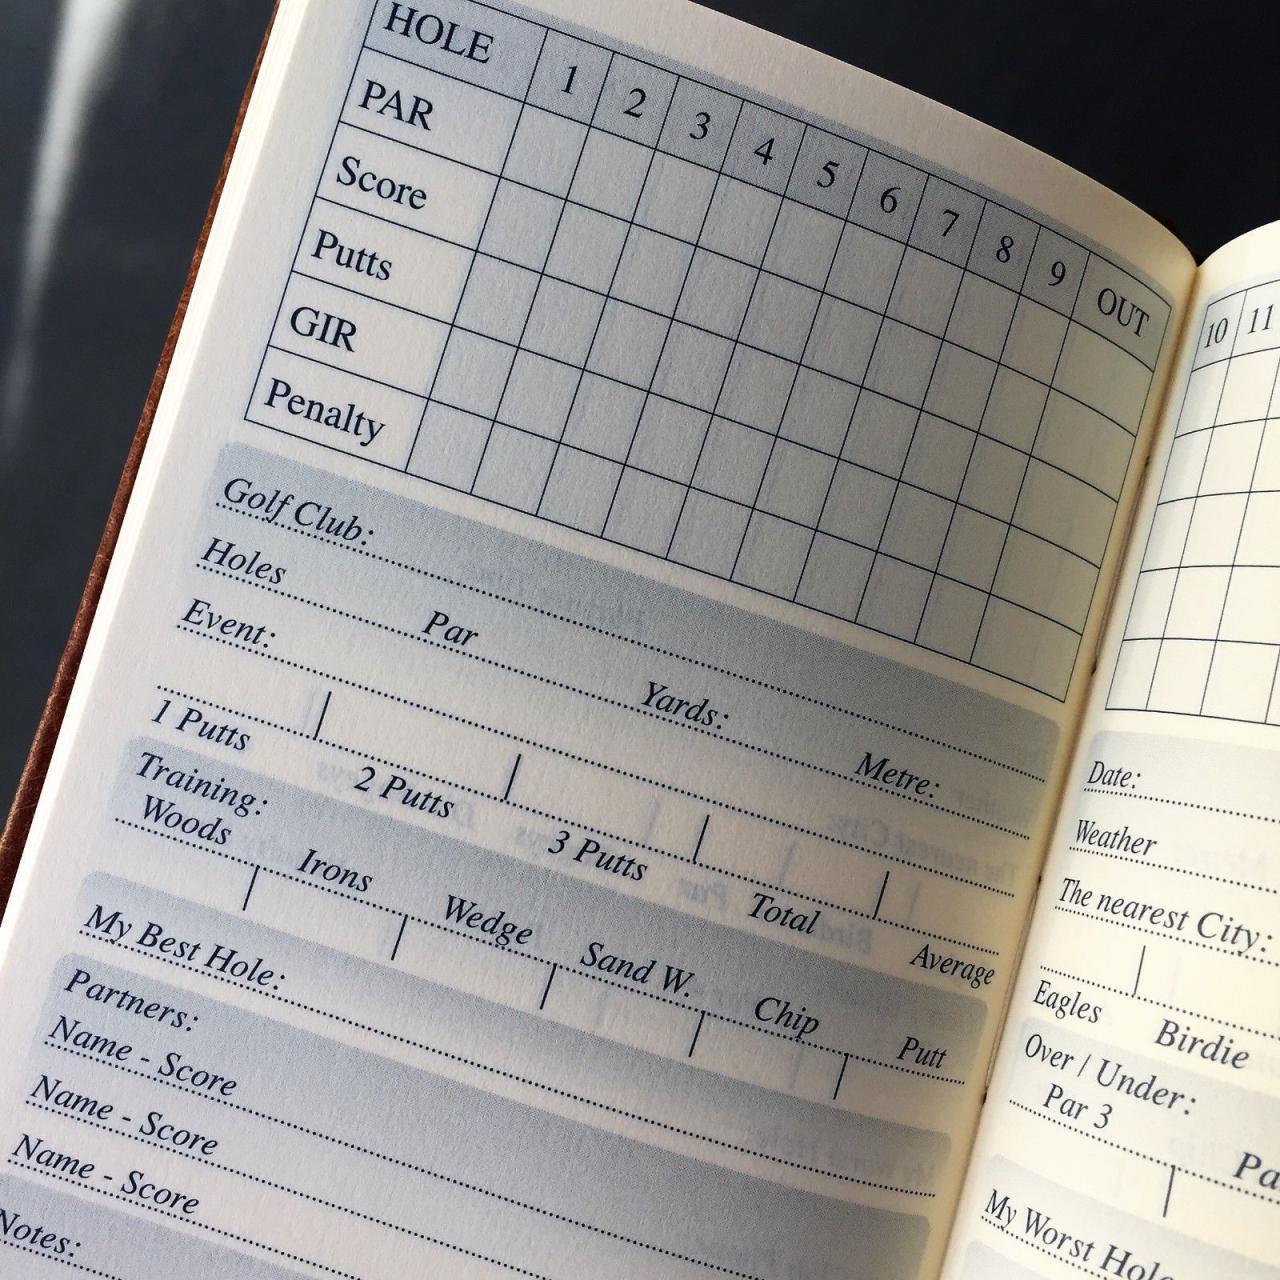 HOLE 1 2 3 4 5 6 7 8 9 OUT
PAR
Score
Putts
GIR
Penalty
Golf Club:
Holes Par Yards: Metre:
Event:
1 Putts 2 Putts 3 Putts Total Average
Training:
Woods Irons Wedge Sand W. Chip Putt
My Best Hole:
Partners:
Name - Score
Name - Score
Name - Score
Notes:
10 11
Date:
Weather
The nearest City:
Eagles Birdie
Over / Under:
Par 3 Pa
My Worst Hole